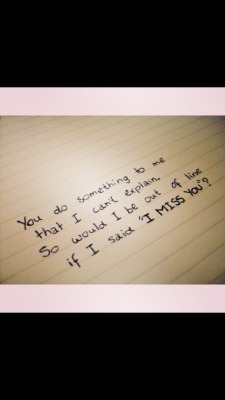 You do something to me
that I can't explain.
So would I be out of line
if I said "I MISS YOU"?